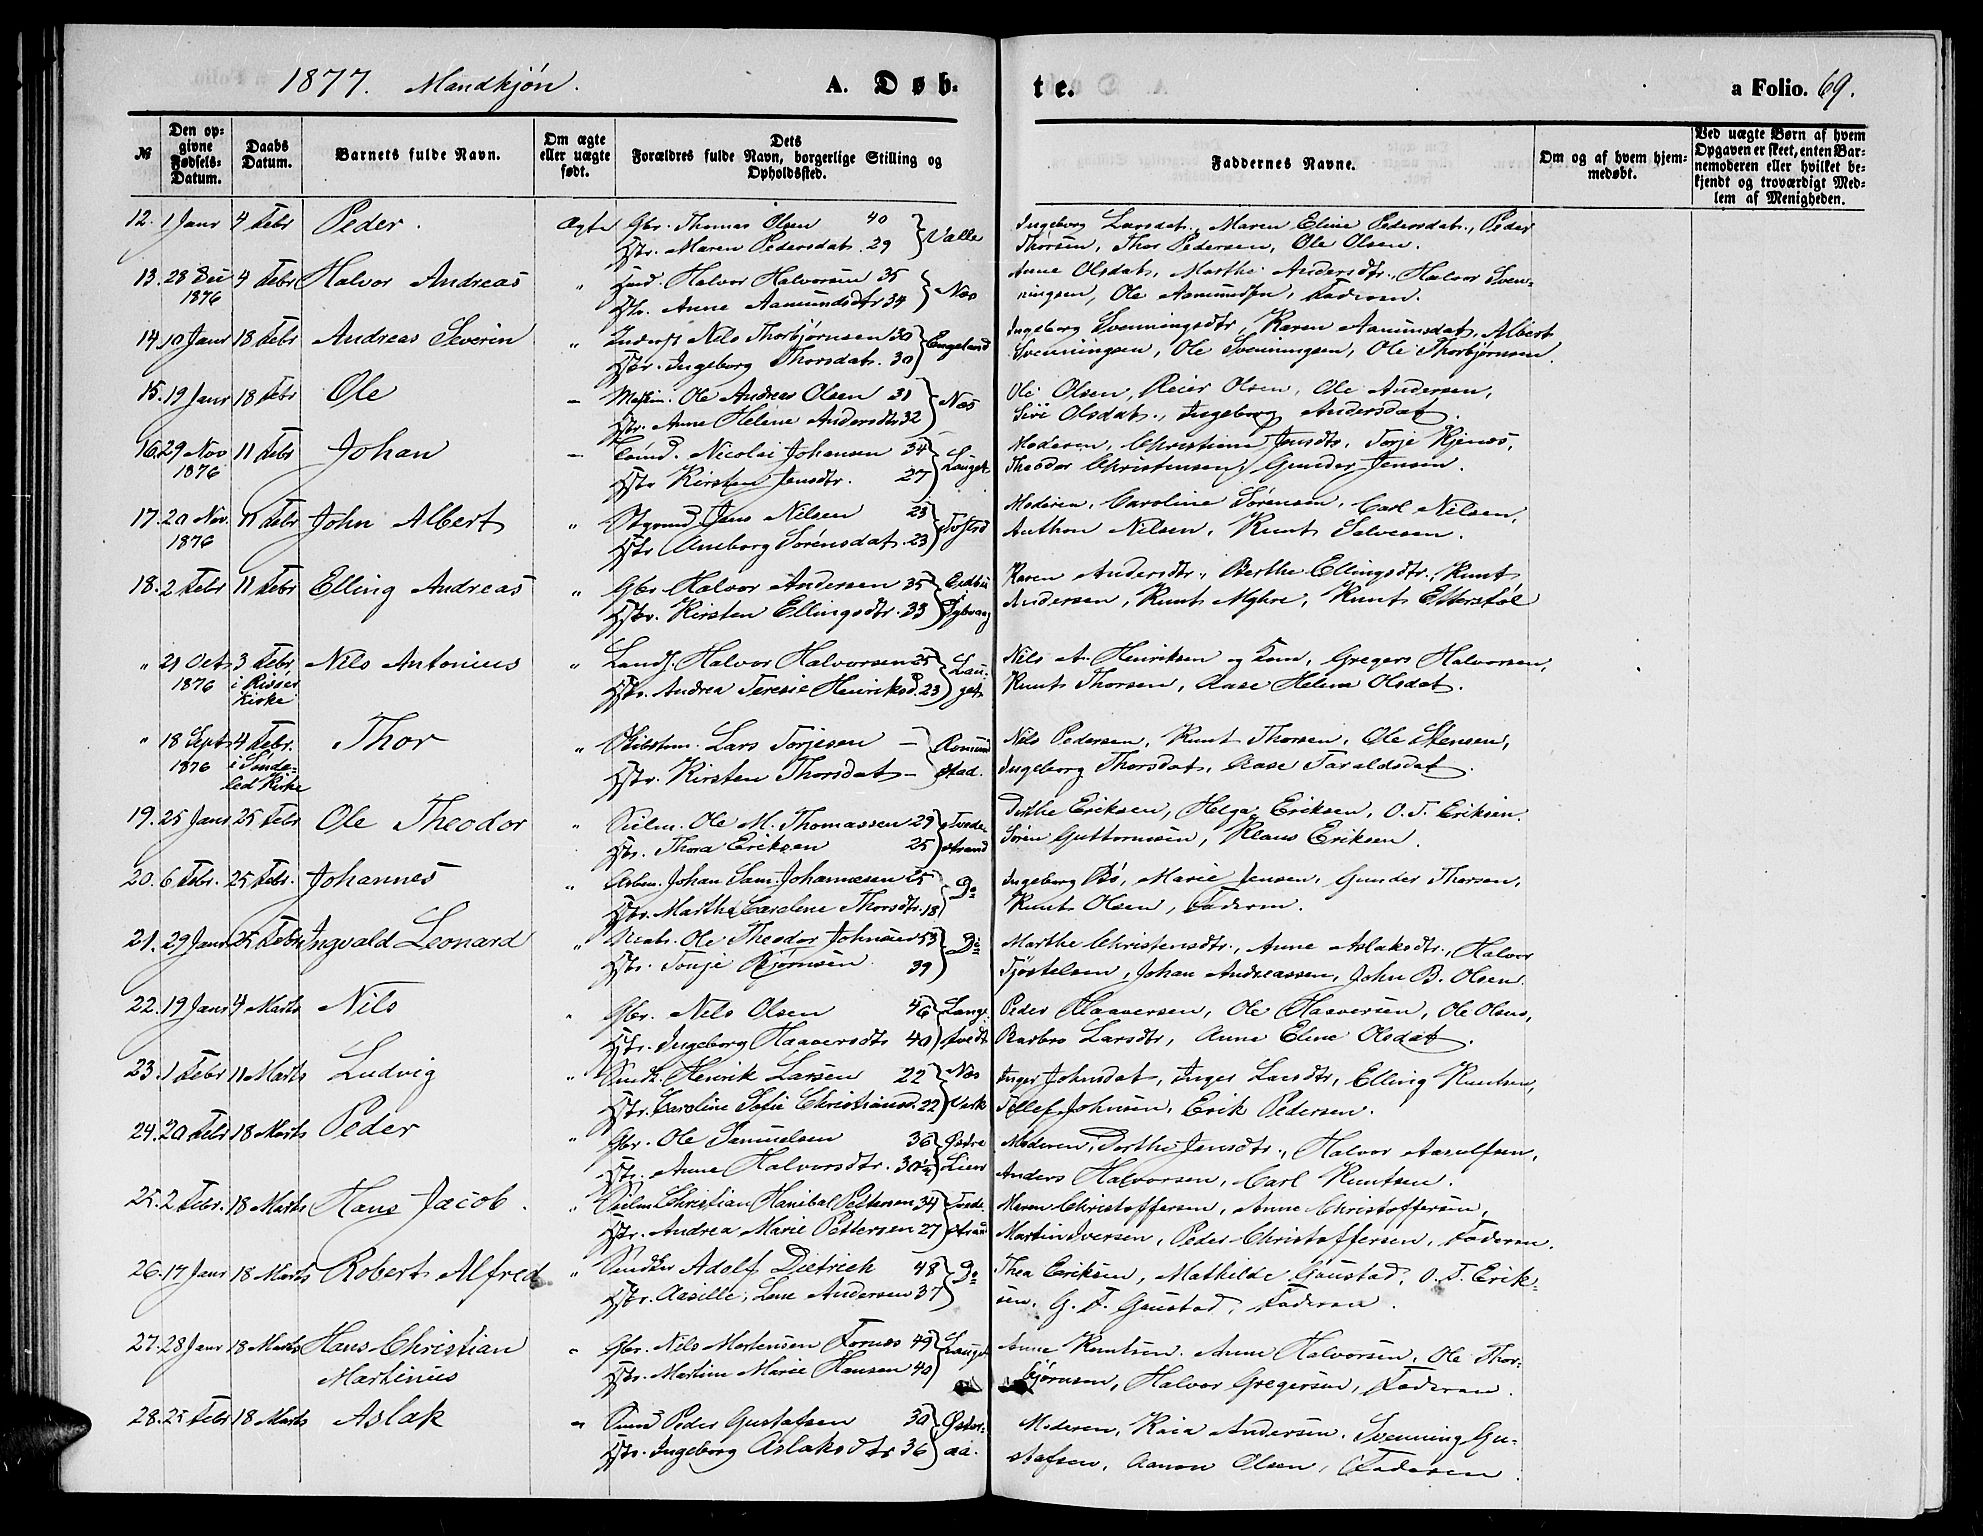 1877. Mandkjön.
A. Døb-
te.
a Folio. 69.
№
Den opgivne Fødsels-Datum.
Daabs Datum.
Barnets fulde Navn.
Om ægte eller uægte født.
Dets Forældres fulde Navn, borgerlige Stilling og Opholdssted.
Faddernes Navne.
Om og af hvem hjemmedøbt.
Ved uægte Børn af hvem Opgaven er skeet, enten Barnemoderen eller hvilket bekjendt og troværdigt Medlem af Menigheden.
12. 1 Janr 4 Febr Peder. Ægte Gbr. Thomas Olsen 40 Valle Ingeborg Larsdat., Maren Eline Pedersdat., Peder
Htr. Maren Pedersdat. 29 Thorsen, Thor Pedersen, Ole Olsen.
13. 28 Dec 4 Febr Halvor Andreas " Halvor Halvorsen 35 Næs Anne Olsdat, Marthe Andersdtr, Halvor Sven-
1876 Htr. Anne Aamundsdtr 34 ningsen, Ole Aamundsen, Faderen.
14. 10 Janr 18 Febr Andreas Severin " Inderst Nils Thorbjørnsen 30 Engeland Ingeborg Svenningsdtr, Karen Aamunsdat, Albert
Htr. Ingeborg Thorsdat. 30 Svenningsen, Ole Svenningsen, Ole Thorbjørnsen.
15. 19 Janr 18 Febr Ole " Ole Andreas Olsen 31 Næs Ole Olsen, Reier Olsen, Ole Andersen,
Htr. Anne Helene Andersdtr 32 Siri Olsdat., Ingeborg Andersdat.
16. 29 Nov 11 Febr Johan " Nicolai Johansen 34 Lauget Moderen, Christiane Jensdtr, Torje Kjenæs,
1876 Htr Kirsten Jensdtr. 27 Theodor Christensen, Gunder Jensen.
17. 20 Nov. 11 Febr John Albert " Styrmd Jens Nilsen 23 Moderen, Caroline Sørensen, Carl Nilsen,
1876 Htr Aneborg Sørensdat. 23 Anthon Nilsen, Knut Salvesen.
18. 2 Febr 11 Febr Elling Andreas " Gbr Halvor Andersen 35 Karen Andersdtr., Berthe Ellingsdtr., Knut
Htr. Kirsten Ellingsdtr. 33 Dybvaag Andersen, Knut Myhre, Knut Etterstøl
" 21 Oct 3 Febr Nils Antonius " Halvor Halvorsen 25 Lau- Nils A. Henriksen og Kone, Gregers Halvorsen,
1876 i Risøer Kirke Htr. Andrea Teresie Henriksd. 23 get Knut Thorsen, Aase Helene Olsdat.
" 18 Sept 4 Febr. Thor " Skibstm. Lars Torjesen — Romund Nils Pedersen, Knut Thorsen, Ole Stensen,
1876 i Sønde-led Kirke Htr. Kirsten Thorsdat — stad. Ingeborg Thorsdat, Aase Taraldsdat.
19. 25 Janr 25 Febr Ole Theodor " Seilm. Ole M. Thomassen 29 Tvede- Dorthe Eriksen, Helga Eriksen, O. T. Eriksen.
Htr. Thora Eriksen 25 strand Søren Guttormsen, Klaus Eriksen.
20. 6 Febr. 25 Febr. Johannes " Arbm. Johan Sam. Johannesen 25 Do Ingeborg Bö, Marie Jensen, Gunder Thorsen,
Htr. Marthe Carolene Thorsdtr. 18 Knut Olsen, Faderen.
21. 29 Janr 25 Febr Ingvald Leonard " Ole Theodor Johnsen 53 Do Marthe Christensdtr., Anne Aslaksdtr., Halvor
Htr. Tonje Bjørnsen 39 Tjøstelsen, Johan Andreassen, John B. Olsen.
22. 19 Janr 4 Marts Nils " Gbr. Nils Olsen 46 Langs- Peder Haaversen, Ole Haaversen, Ole Olsen,
Htr. Ingeborg Haaversdtr 40 tvedt Barbro Larsdtr, Anne Eline Olsdat.
23. 1 Febr 11 Marts Ludvig " Smdk. Henrik Larsen 22 Næs Inger Johnsdat, Inger Larsdtr, Elling Knutsen,
Htr. Caroline Sofie Christiansd. 22 Værk Tellef Johnsen, Erik Pedersen.
24. 20 Febr 18 Marts Peder " Gbr. Ole Samuelsen 36 Østre Moderen, Dorthe Jensdtr., Halvor Aasulfsen,
Htr. Anne Halvorsdtr. 30½ Lien Anders Halvorsen, Carl Knutsen.
25. 2 Febr. 18 Marts Hans Jacob. " Seilm Christian Hanibal Pettersen 34 Tvede- Maren Christoffersen, Anne Christoffersen,
Htr. Andrea Marie Pettersen 27 strand Martin Iversen, Peder Christoffersen, Faderen.
26. 17 Janr 18 Marts Robert Alfred " Adolf Dietrich 48 Do Thea Eriksen, Mathilde Goustad, O. T. Erik-
Htr. Aasille, Lene Andersen 37 sen, G. F. Goustad, Faderen.
27. 28 Janr 18 Marts Hans Christian " Gbr. Nils Mortensen Fornæs 49 Lauget Anne Knutsen. Anne Halvorsen, Ole Thor-
Martinius Htr. Martine Marie Hansen 40 bjørnsen, Halvor Gregersen, Faderen.
28. 25 Febr 18 Marts Aslak " Smd Peder Gustafsen 30 Øster- Moderen, Kaia Andersen, Svenning Gu-
Htr. Ingeborg Aslaksdtr 36 aa. stafsen, Aanon Olsen, Faderen.